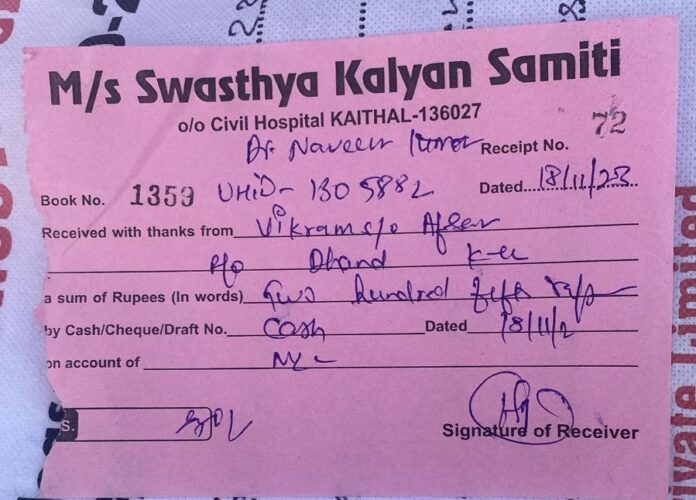 M/s Swasthya Kalyan Samiti
o/o Civil Hospital KAITHAL-136027
Dr. Naveen Kumar Receipt No. 72
Book No. 1359 UHiD- 1305882 Dated 18/11/23
Received with thanks from Vikram s/o
R/o Dhand
a sum of Rupees (In words) Two hundred fifty
by Cash/Cheque/Draft No. Cash Dated 18/11/2
on account of
s.
Signature of Receiver
vate Limited